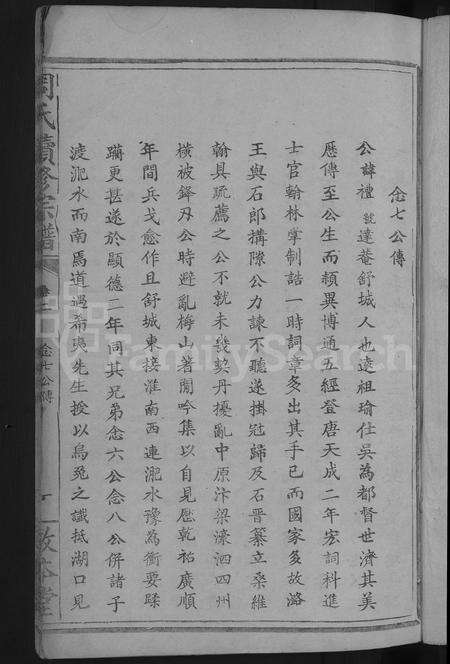 念七公傳
公諱禮號達菴舒城人也遠祖瑜仕吳為都督世濟其美
歷傳至公生而穎異博通五經登唐天成二年宏詞科進
士官翰林掌制誥一時詞章多出其手已而國家多故潞
王與石郎搆隙公力諫不聽遂掛冠歸及石晉纂立桑維
翰具疏薦之公不就未幾契丹擾亂中原汴梁濠泗四州
橫被鋒刃公時避亂梅山著閒吟集以自見歷乾祐廣順
年間兵戈愈作且舒城東接淮南西連淝水豫為衝要蹂
躪更甚遂於顯德二年同其兄弟念六公念八公併諸子
渡淝水而南馬道遇希夷先生授以烏兔之讖抵湖口見
周氏續修宗譜
念七公傳
一
敦本堂
FamilySearch